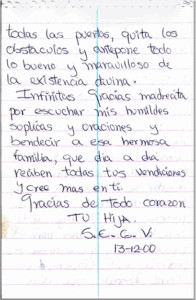 todas las puertas, quita los
obstaculos y antepone todo
lo bueno y maravilloso de
la existencia divina.
Infinitas gracias madrecita
por escuchar mis humildes
suplicas y oraciones y
bendecir a esa hermosa
familia, que dia a dia
reciben todas tus vendiciones
y cree mas en ti.
Gracias de Todo corazon
TU HIJA.
S.E.G.V.
13-12-00